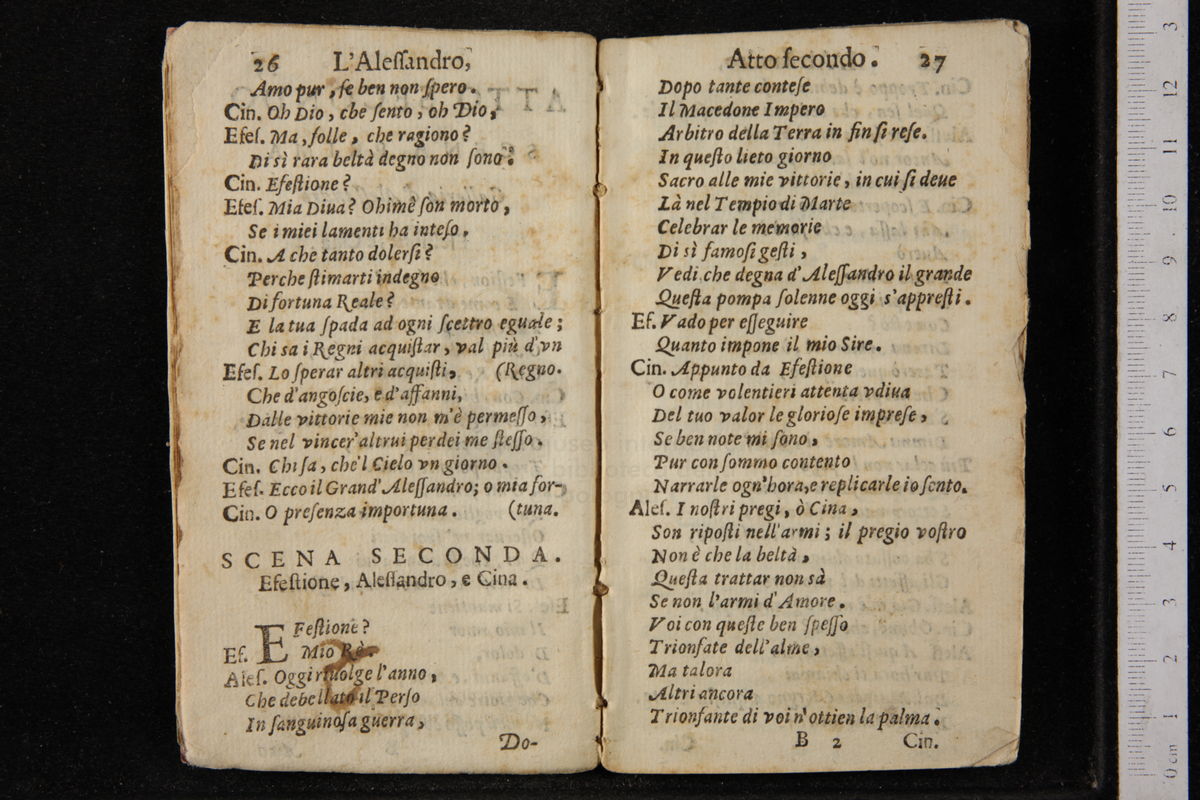 26 L'Alessandro,
Amo pur, se ben non spero.
Cin. Oh Dio, che sento, oh Dio,
Efes. Ma, folle, che ragiono?
Di sì rara beltà degno non sono.
Cin. Efestione?
Efes. Mia Diua? Ohimè son morto,
Se i miei lamenti ha inteso.
Cin. A che tanto dolersi?
Perche stimarti indegno
Di fortuna Reale?
E la tua spada ad ogni scettro eguale;
Chi sa i Regni acquistar, val più d'vn
Efes. Lo sperar altri acquisti, (Regno.
Che d'angoscie, e d'affanni,
Dalle vittorie mie non m'è permesso,
Se nel vincer altrui perdei me stesso.
Cin. Chi sa, che'l Cielo vn giorno.
Efes. Ecco il Grand'Alessandro; o mia for-
Cin. O presenza importuna. (tuna.
SCENA SECONDA.
Efestione, Alessandro, e Cina.
EFestione?
Ef. Mio Rè.
Ales. Oggi riuolge l'anno,
Che debellato il Perso
In sanguinosa guerra,
Do-
Atto secondo. 27
Dopo tante contese
Il Macedone Impero
Arbitro della Terra in fin si rese.
In questo lieto giorno
Sacro alle mie vittorie, in cui si deue
Là nel Tempio di Marte
Celebrar le memorie
Di sì famosi gesti,
Vedi che degna d'Alessandro il grande
Questa pompa solenne oggi s'appresti.
Ef. Vado per esseguire
Quanto impone il mio Sire.
Cin. Appunto da Efestione
O come volentieri attenta vdiua
Del tuo valor le gloriose imprese,
Se ben note mi sono,
Pur con sommo contento
Narrarle ogn'hora, e replicarle io sento.
Ales. I nostri pregi, ò Cina,
Son riposti nell'armi; il pregio vostro
Non è che la beltà,
Questa trattar non sà
Se non l'armi d'Amore.
Voi con queste ben spesso
Trionfate dell'alme,
Ma talora
Altri ancora
Trionfante di voi n'ottien la palma.
B 2 Cin.